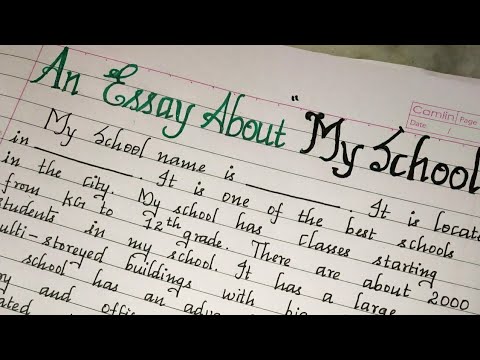 An Essay About "My School
Camlin Page
Date /
My School name is ________. It is locate
in ________. It is one of the best schools
in the city. My school has classes starting
from KG to 12th grade. There are about 2000
students in my school. It has a large
ulti-storeyed buildings with
school has an adva
ry and offic
ated